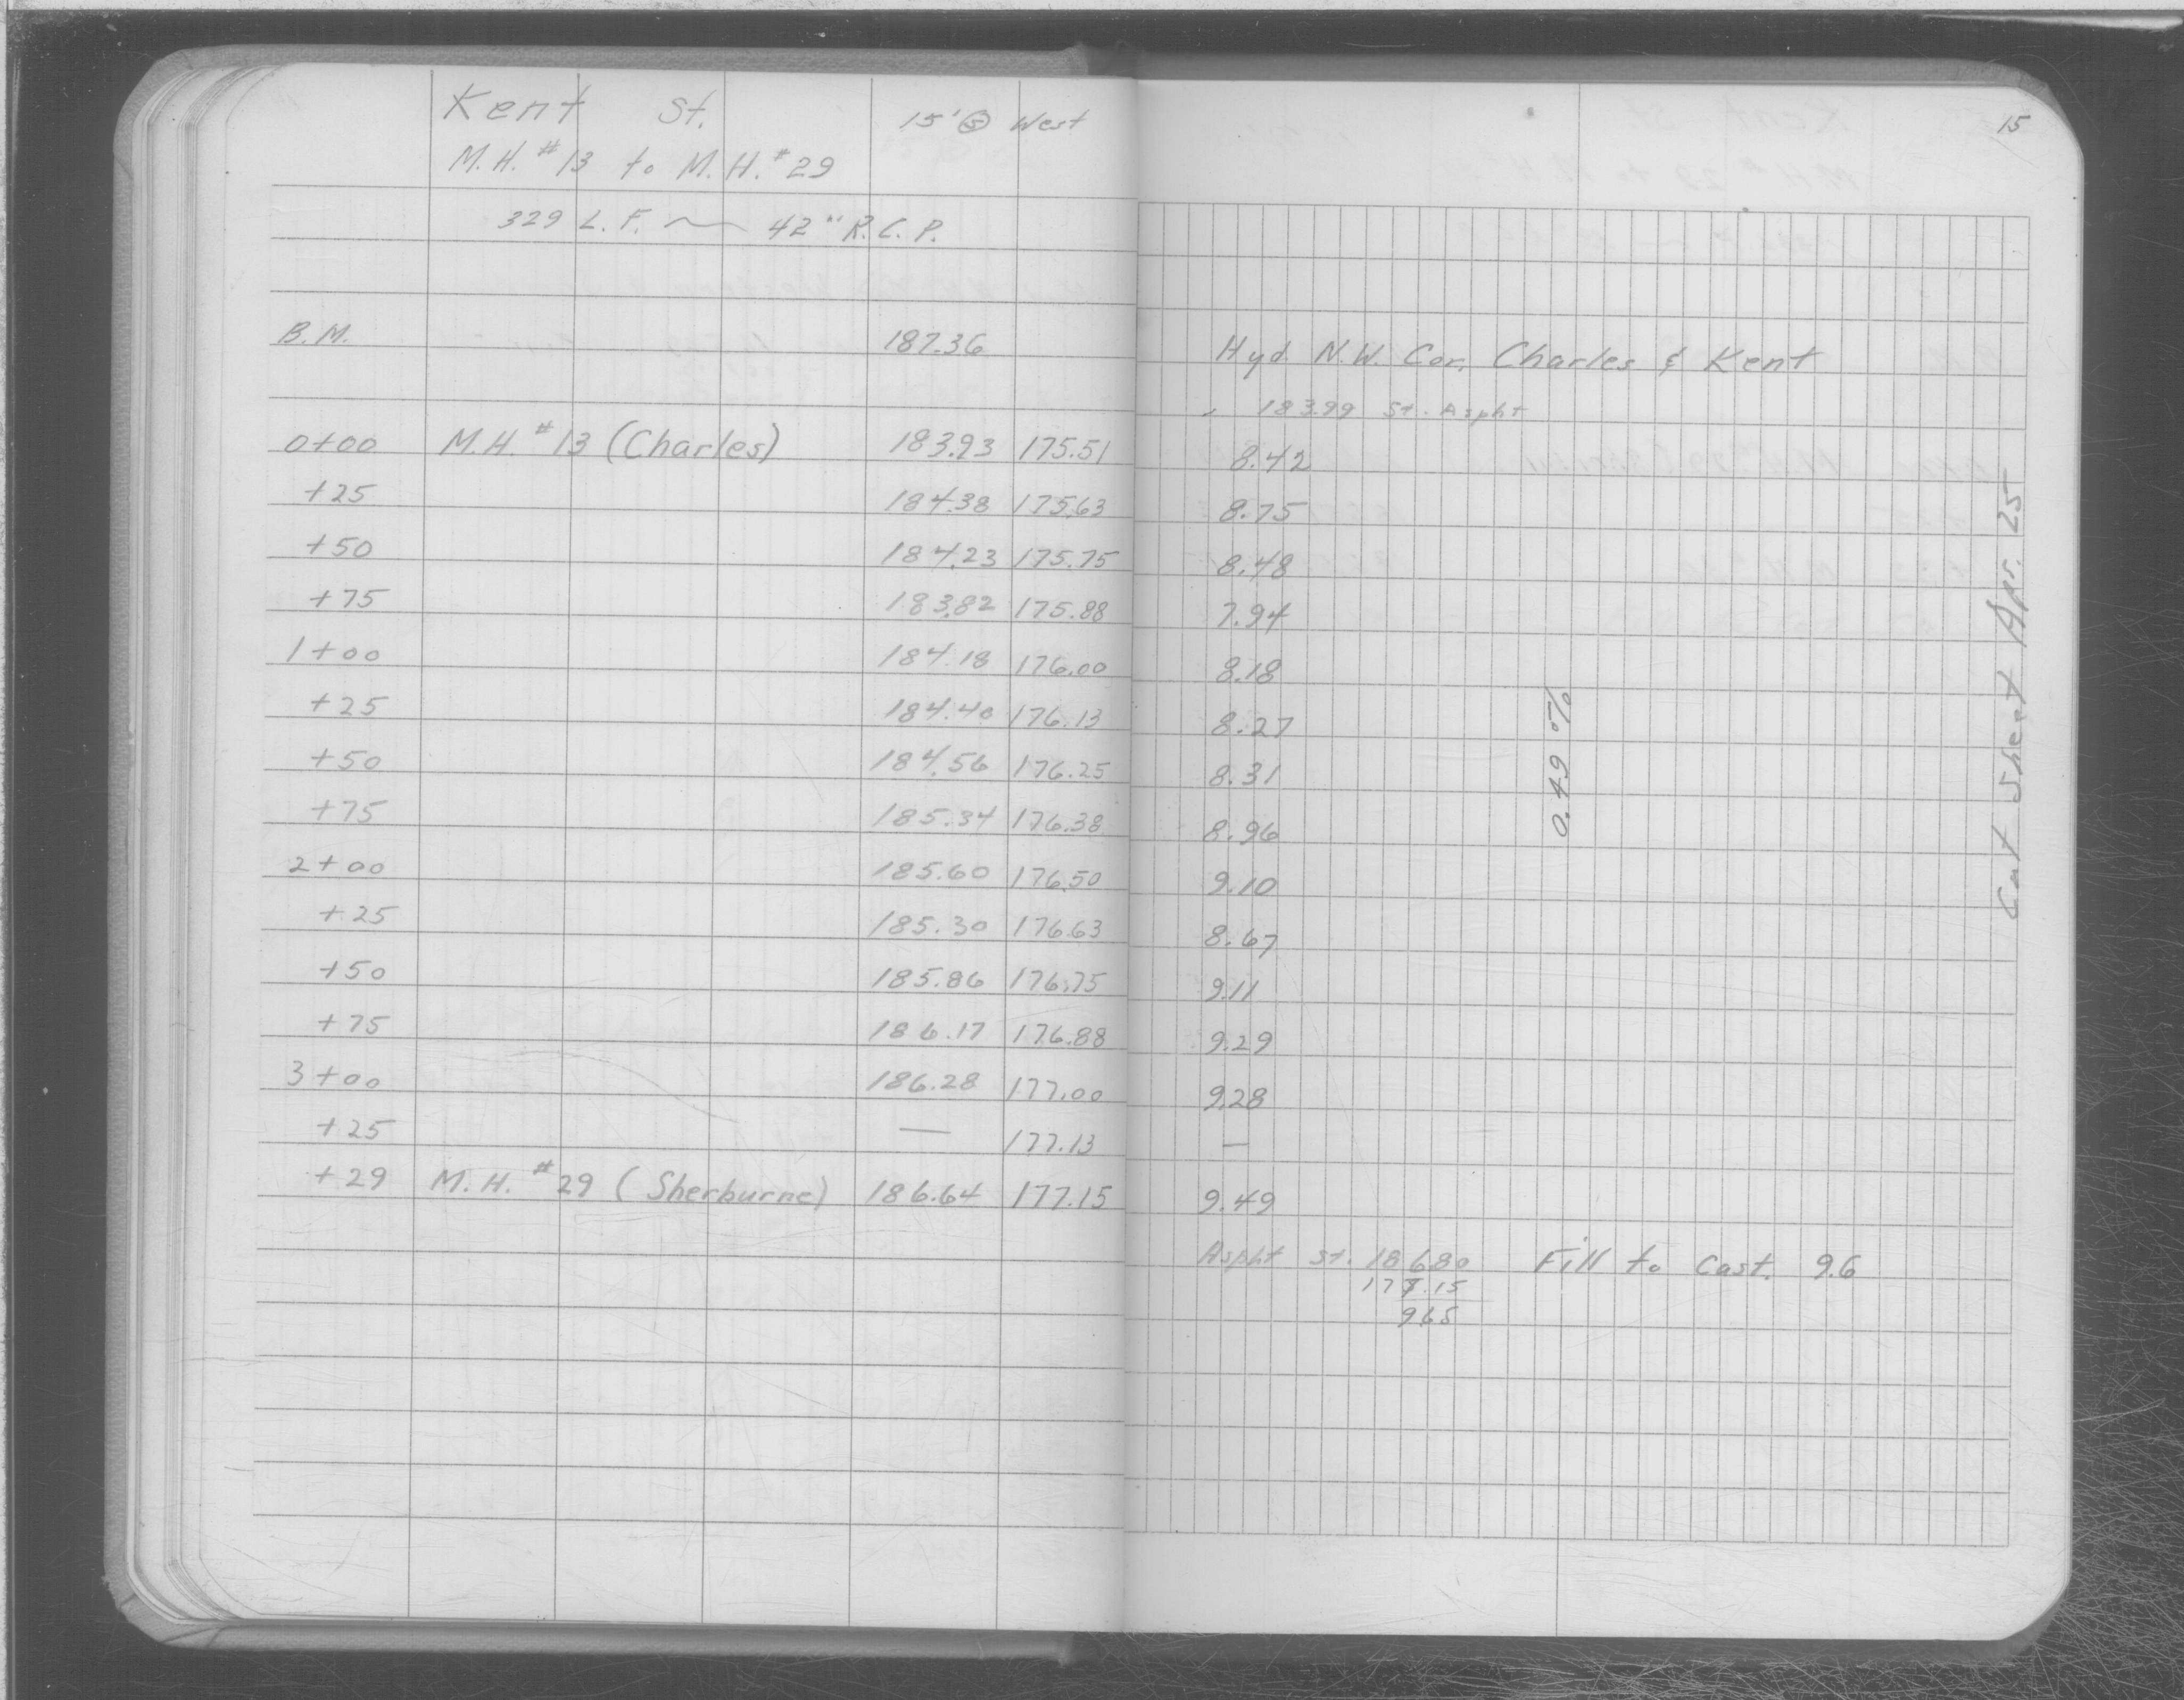 15
Kent St. 15' Ⓢ West
M.H. #13 to M.H. #29
329 L.F. ~ 42" R.C.P.
B.M. 187.36 Hyd. N.W. Cor. Charles & Kent
183.99 St. Aspht
0+00 M.H. #13 (Charles) 183.93 175.51 8.42
+25 184.38 175.63 8.75
+50 184.23 175.75 8.48
+75 183.82 175.88 7.94
1+00 184.18 176.00 8.18
+25 184.40 176.13 8.27
+50 184.56 176.25 8.31
+75 185.34 176.38 8.96
2+00 185.60 176.50 9.10
+25 185.30 176.63 8.67
+50 185.86 176.75 9.11
+75 186.17 176.88 9.29
3+00 186.28 177.00 9.28
+25 — 177.13 —
+29 M.H. #29 (Sherburne) 186.64 177.15 9.49
Aspht St. 186.80 Fill to Cast. 9.6
177.15
9.65
0.49 %
Cut Sheet Apr. 25